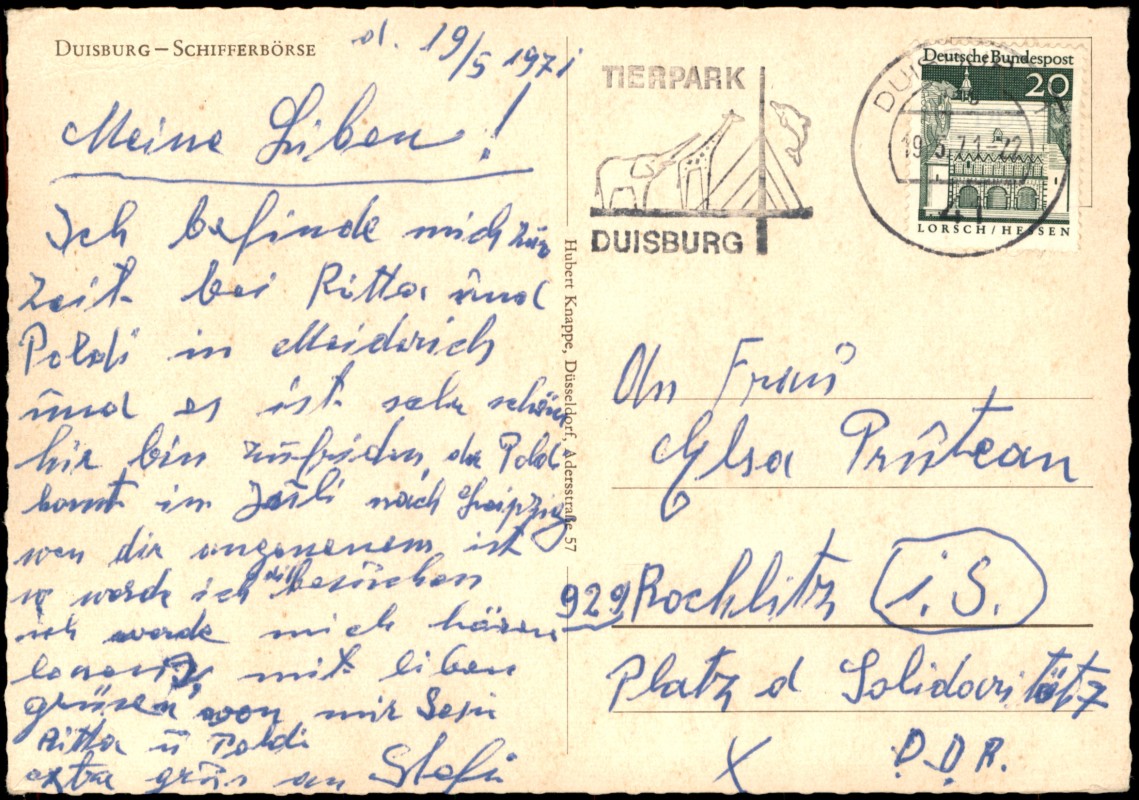 DUISBURG – SCHIFFERBÖRSE
d. 19/5 1971
Meine Liben!
Ich befinde mich zur
Zeit bei Ritta und
Poldi in Meiderich
und es ist sehr schön
hir bin zufriden, der Poldi
komt im Juli nach Leipzig
wen dir angenenem ist
werde ich dich besuchen
ich werde mich hören
lasen, mit liben
grüsen von mir
Ritta u Poldi
extra grüs an Stefi
Hubert Knappe, Düsseldorf, Adersstraße 57
TIERPARK
DUISBURG
DUISBURG
19.5.71-22
41
Deutsche Bundespost
20
LORSCH/HESSEN
An Frau
Elsa Prutean
929 Rochlitz i. S.
Platz d Solidarität 7
X D.D.R.